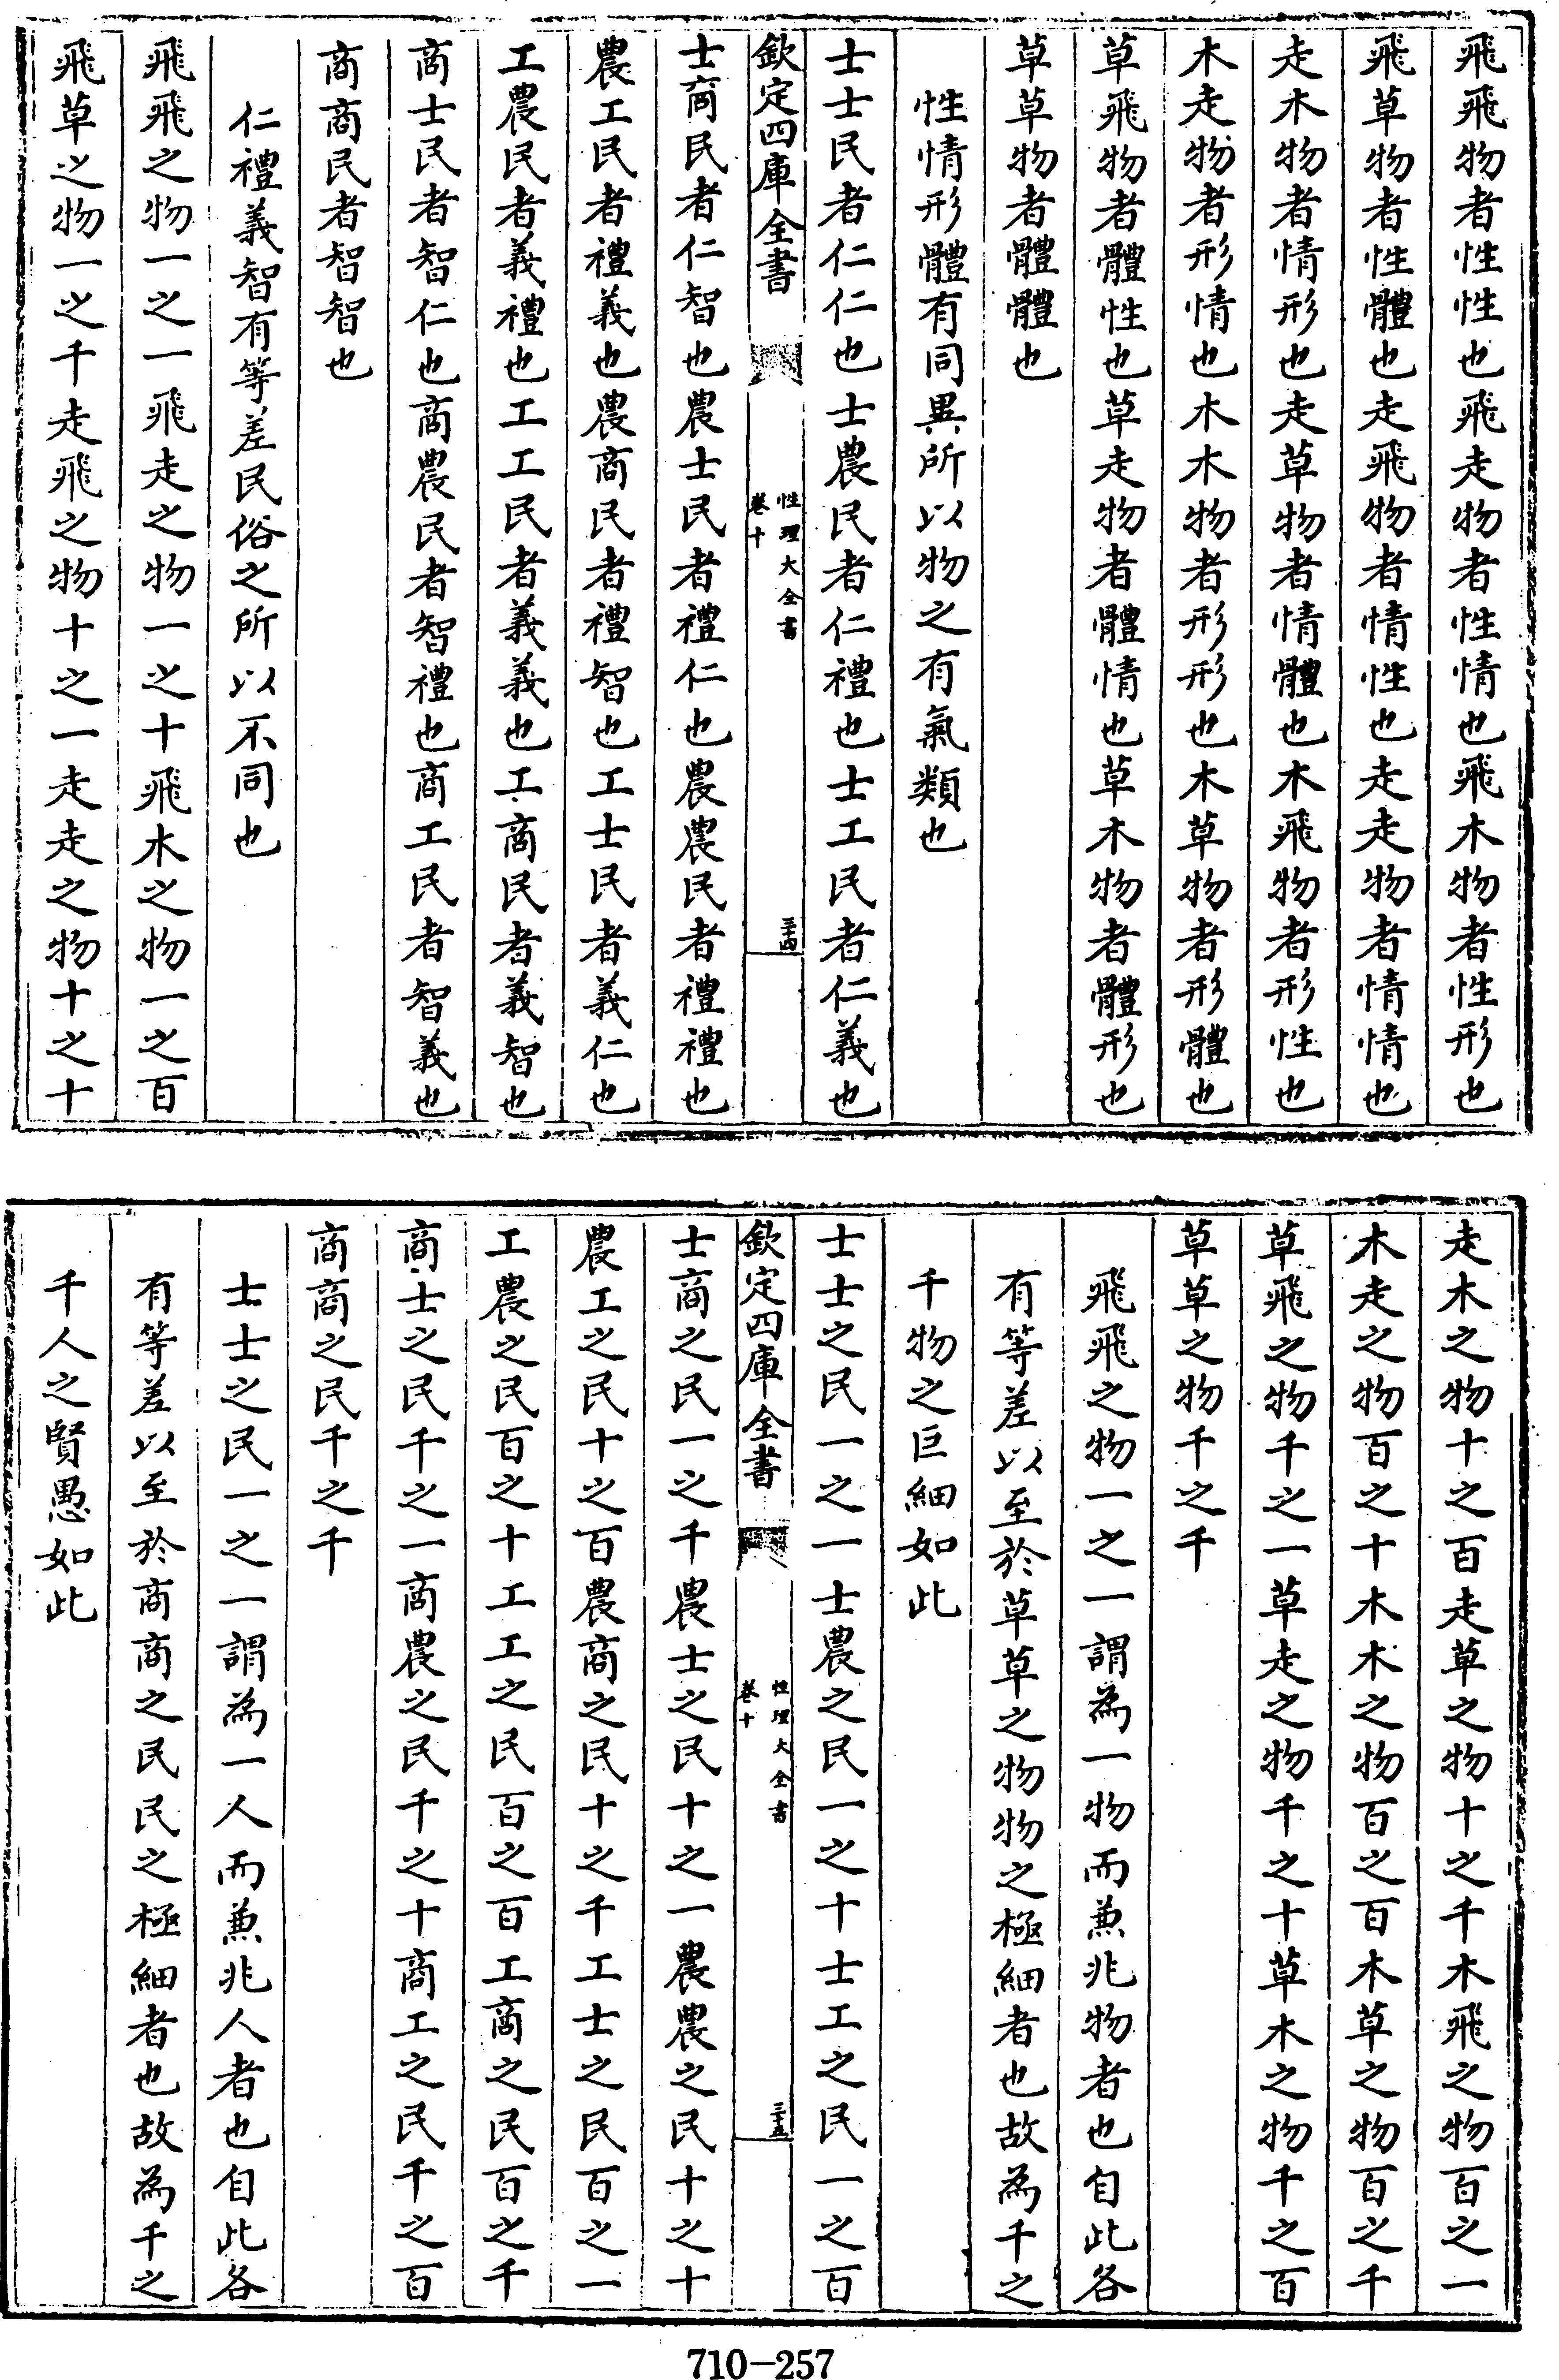 飛飛物者性性也飛走物者性情也飛木物者性形也
飛草物者性體也走飛物者情性也走走物者情情也
走木物者情形也走草物者情體也木飛物者形性也
木走物者形情也木木物者形形也木草物者形體也
草飛物者體性也草走物者體情也草木物者體形也
草草物者體體也
性情形體有同異所以物之有氣類也
士士民者仁仁也士農民者仁禮也士工民者仁義也
欽定四庫全書
性理大全書
卷十
三十四
士商民者仁智也農士民者禮仁也農農民者禮禮也
農工民者禮義也農商民者禮智也工士民者義仁也
工農民者義禮也工工民者義義也工商民者義智也
商士民者智仁也商農民者智禮也商工民者智義也
商商民者智智也
仁禮義智有等差民俗之所以不同也
飛飛之物一之一飛走之物一之十飛木之物一之百
飛草之物一之千走飛之物十之一走走之物十之十
走木之物十之百走草之物十之千木飛之物百之一
木走之物百之十木木之物百之百木草之物百之千
草飛之物千之一草走之物千之十草木之物千之百
草草之物千之千
飛飛之物一之一謂為一物而兼兆物者也自此各
有等差以至於草草之物物之極細者也故為千之
千物之巨細如此
士士之民一之一士農之民一之十士工之民一之百
欽定四庫全書
性理大全書
卷十
三十五
士商之民一之千農士之民十之一農農之民十之十
農工之民十之百農商之民十之千工士之民百之一
工農之民百之十工工之民百之百工商之民百之千
商士之民千之一商農之民千之十商工之民千之百
商商之民千之千
士士之民一之一謂為一人而兼兆人者也自此各
有等差以至於商商之民民之極細者也故為千之
千人之賢愚如此
710-257